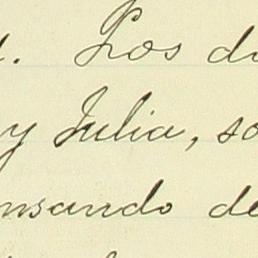 . Los d
y Julia, so
nsando de